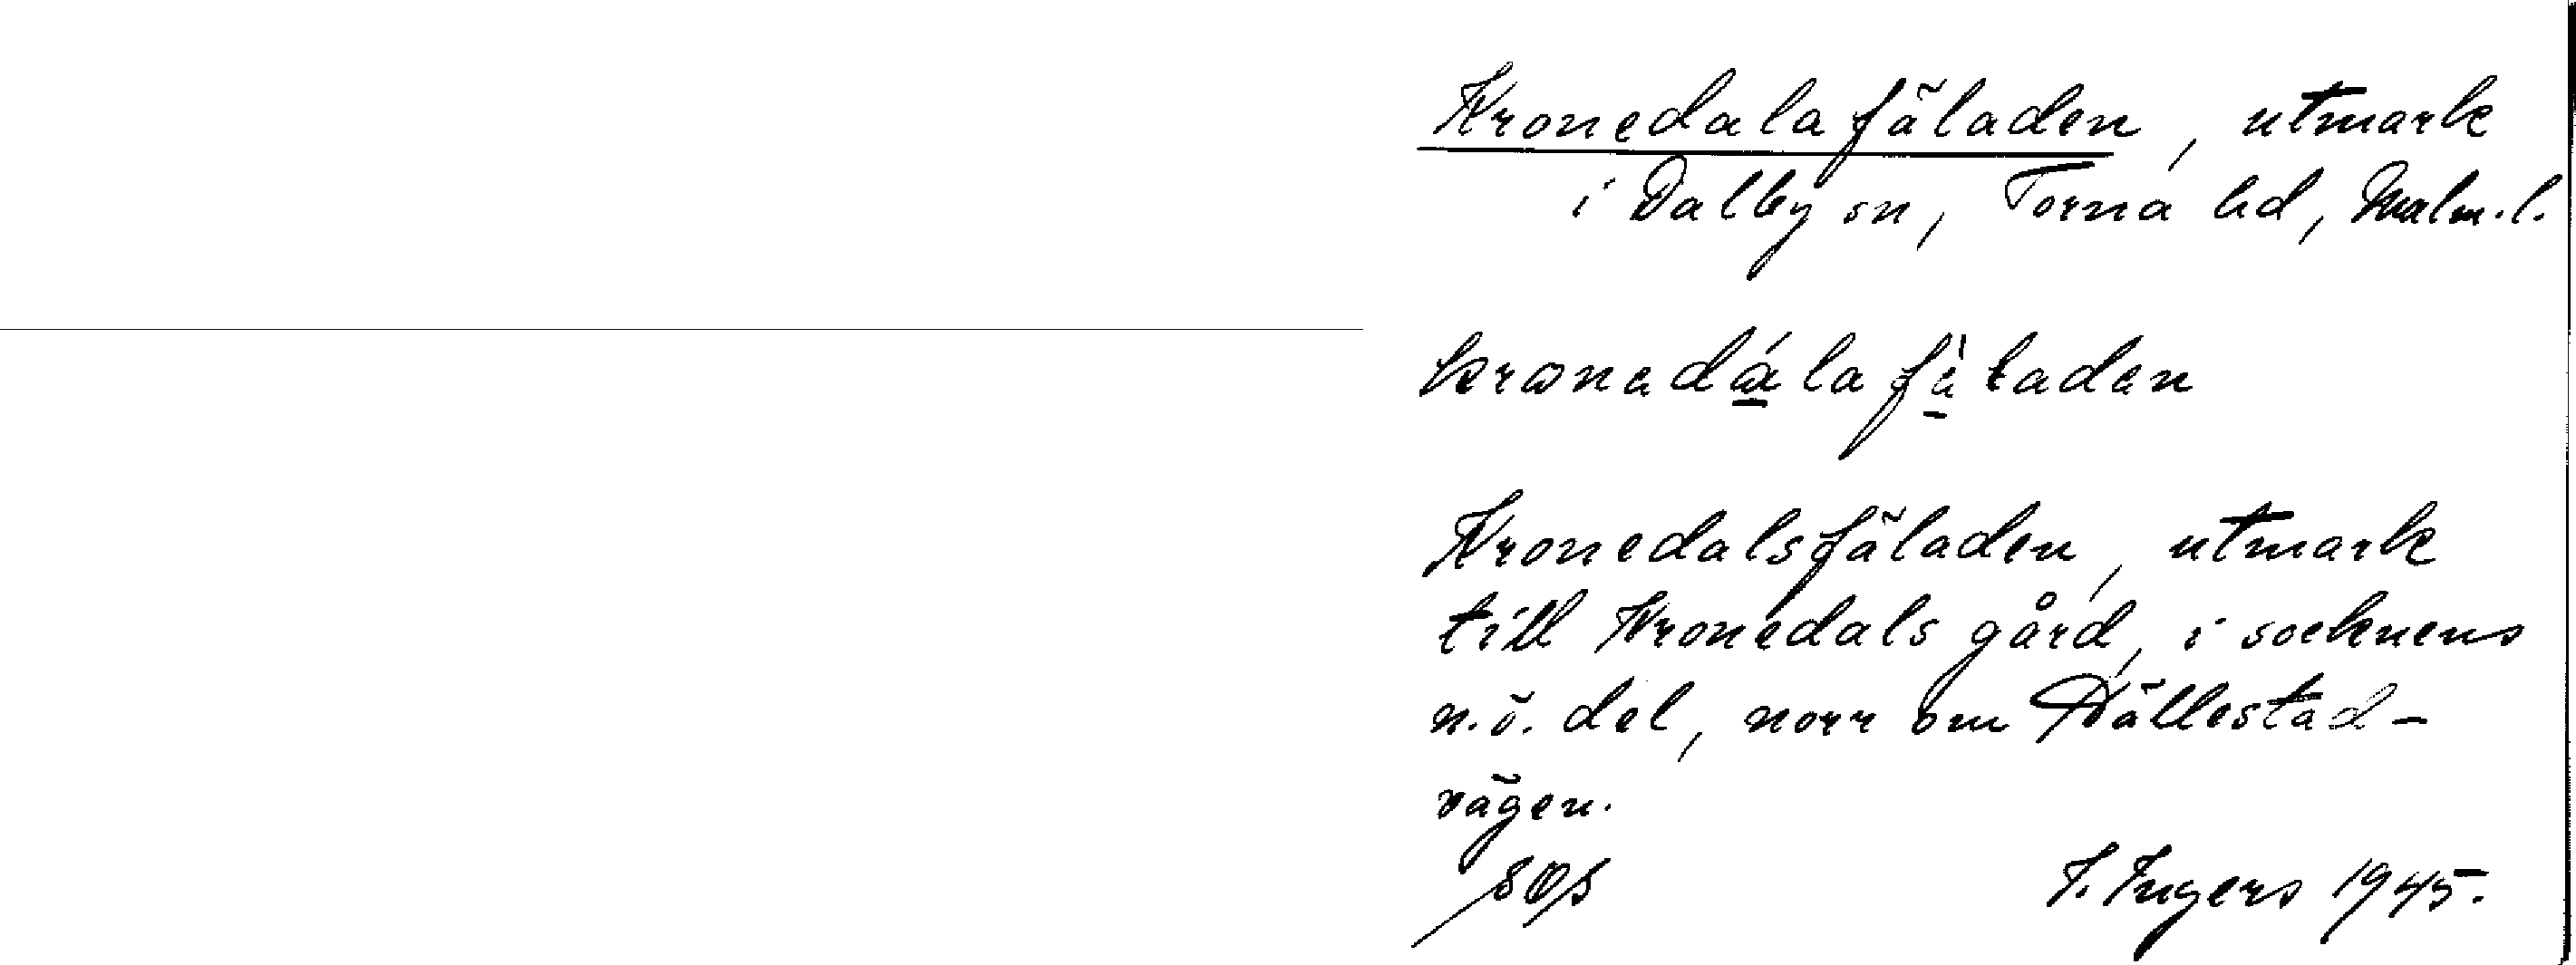 Kronedalafäladen, utmark
i Dalby sn, Torna hd, Malm.l.
kronadálafàladan
Kronedalsfäladen, utmark
till Kronedals gård, i socknens
n.ö. del, norr om Hällestad-
vägen.
I. Ingers 1945.